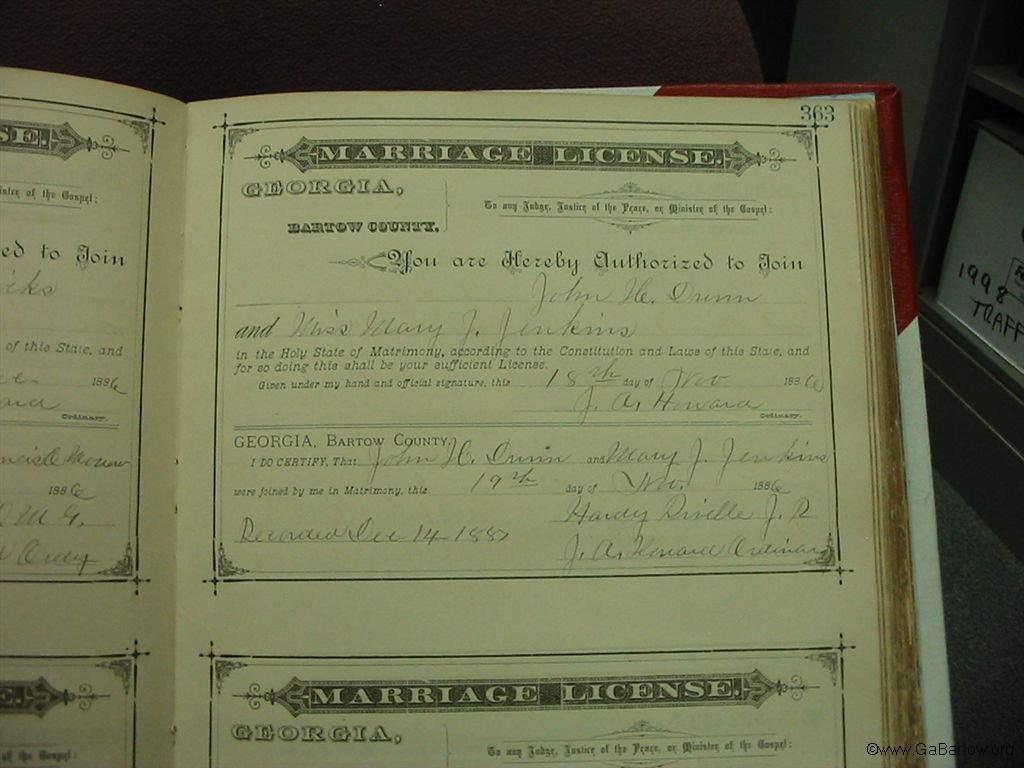 363
SE.
MARRIAGE LICENSE.
ister of the Gospel:
GEORGIA,
To any Judge, Justice of the Peace, or Minister of the Gospel:
BARTOW COUNTY.
ed to Join
You are Hereby Authorized to Join
John H. Dunn
and Miss Mary J. Jenkins
of this State, and
in the Holy State of Matrimony, according to the Constitution and Laws of this State, and
for so doing this shall be your sufficient License.
1886
Given under my hand and official signature, this 18th day of Nov 1886
J. A. Howard
Ordinary.
Ordinary.
GEORGIA, BARTOW COUNTY.
I DO CERTIFY, That John H. Dunn and Mary J. Jenkins
1886
were joined by me in Matrimony, this 19th day of Nov. 1886
Hardy J. P
Recorded Dec 14 1887
J. A. Howard Ordinary
Ordy
E.
MARRIAGE LICENSE.
GEORGIA,
of the Gospel:
To any Judge, Justice of the Peace, or Minister of the Gospel:
1998
TRAFF
©www.GaBartow.org